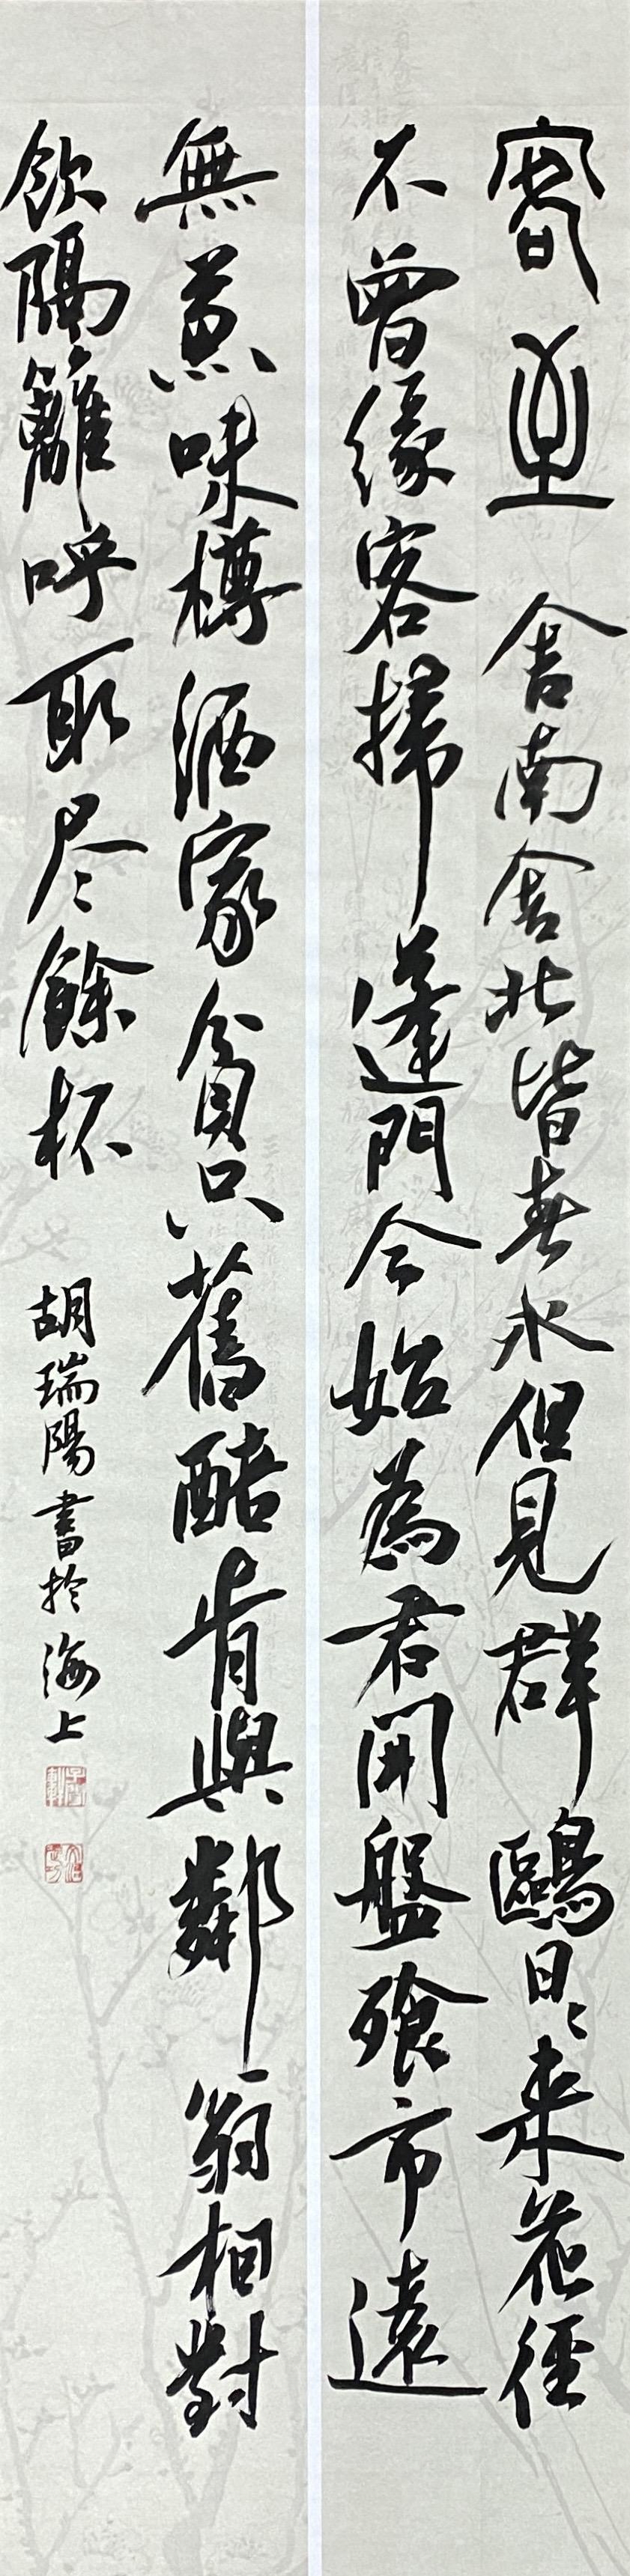 客至 舍南舍北皆春水但見群鷗日々来花徑
不曾緣客掃蓬門今始為君開盤飧市遠
無兼味樽酒家貧只舊醅肯與鄰翁相對
飲隔籬呼取尽餘杯 胡瑞陽書於海上